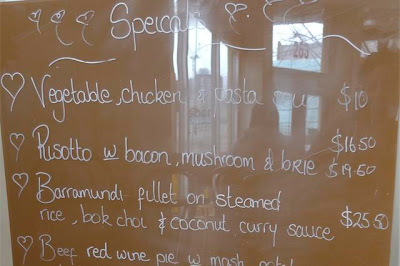 Specials
Vegetable, chicken & pasta soup $10
Risotto w bacon, mushroom & brie $16.50 $19.50
Barramundi fillet on steamed
rice, bok choi & coconut curry sauce $25.50
Beef red wine pie w mash